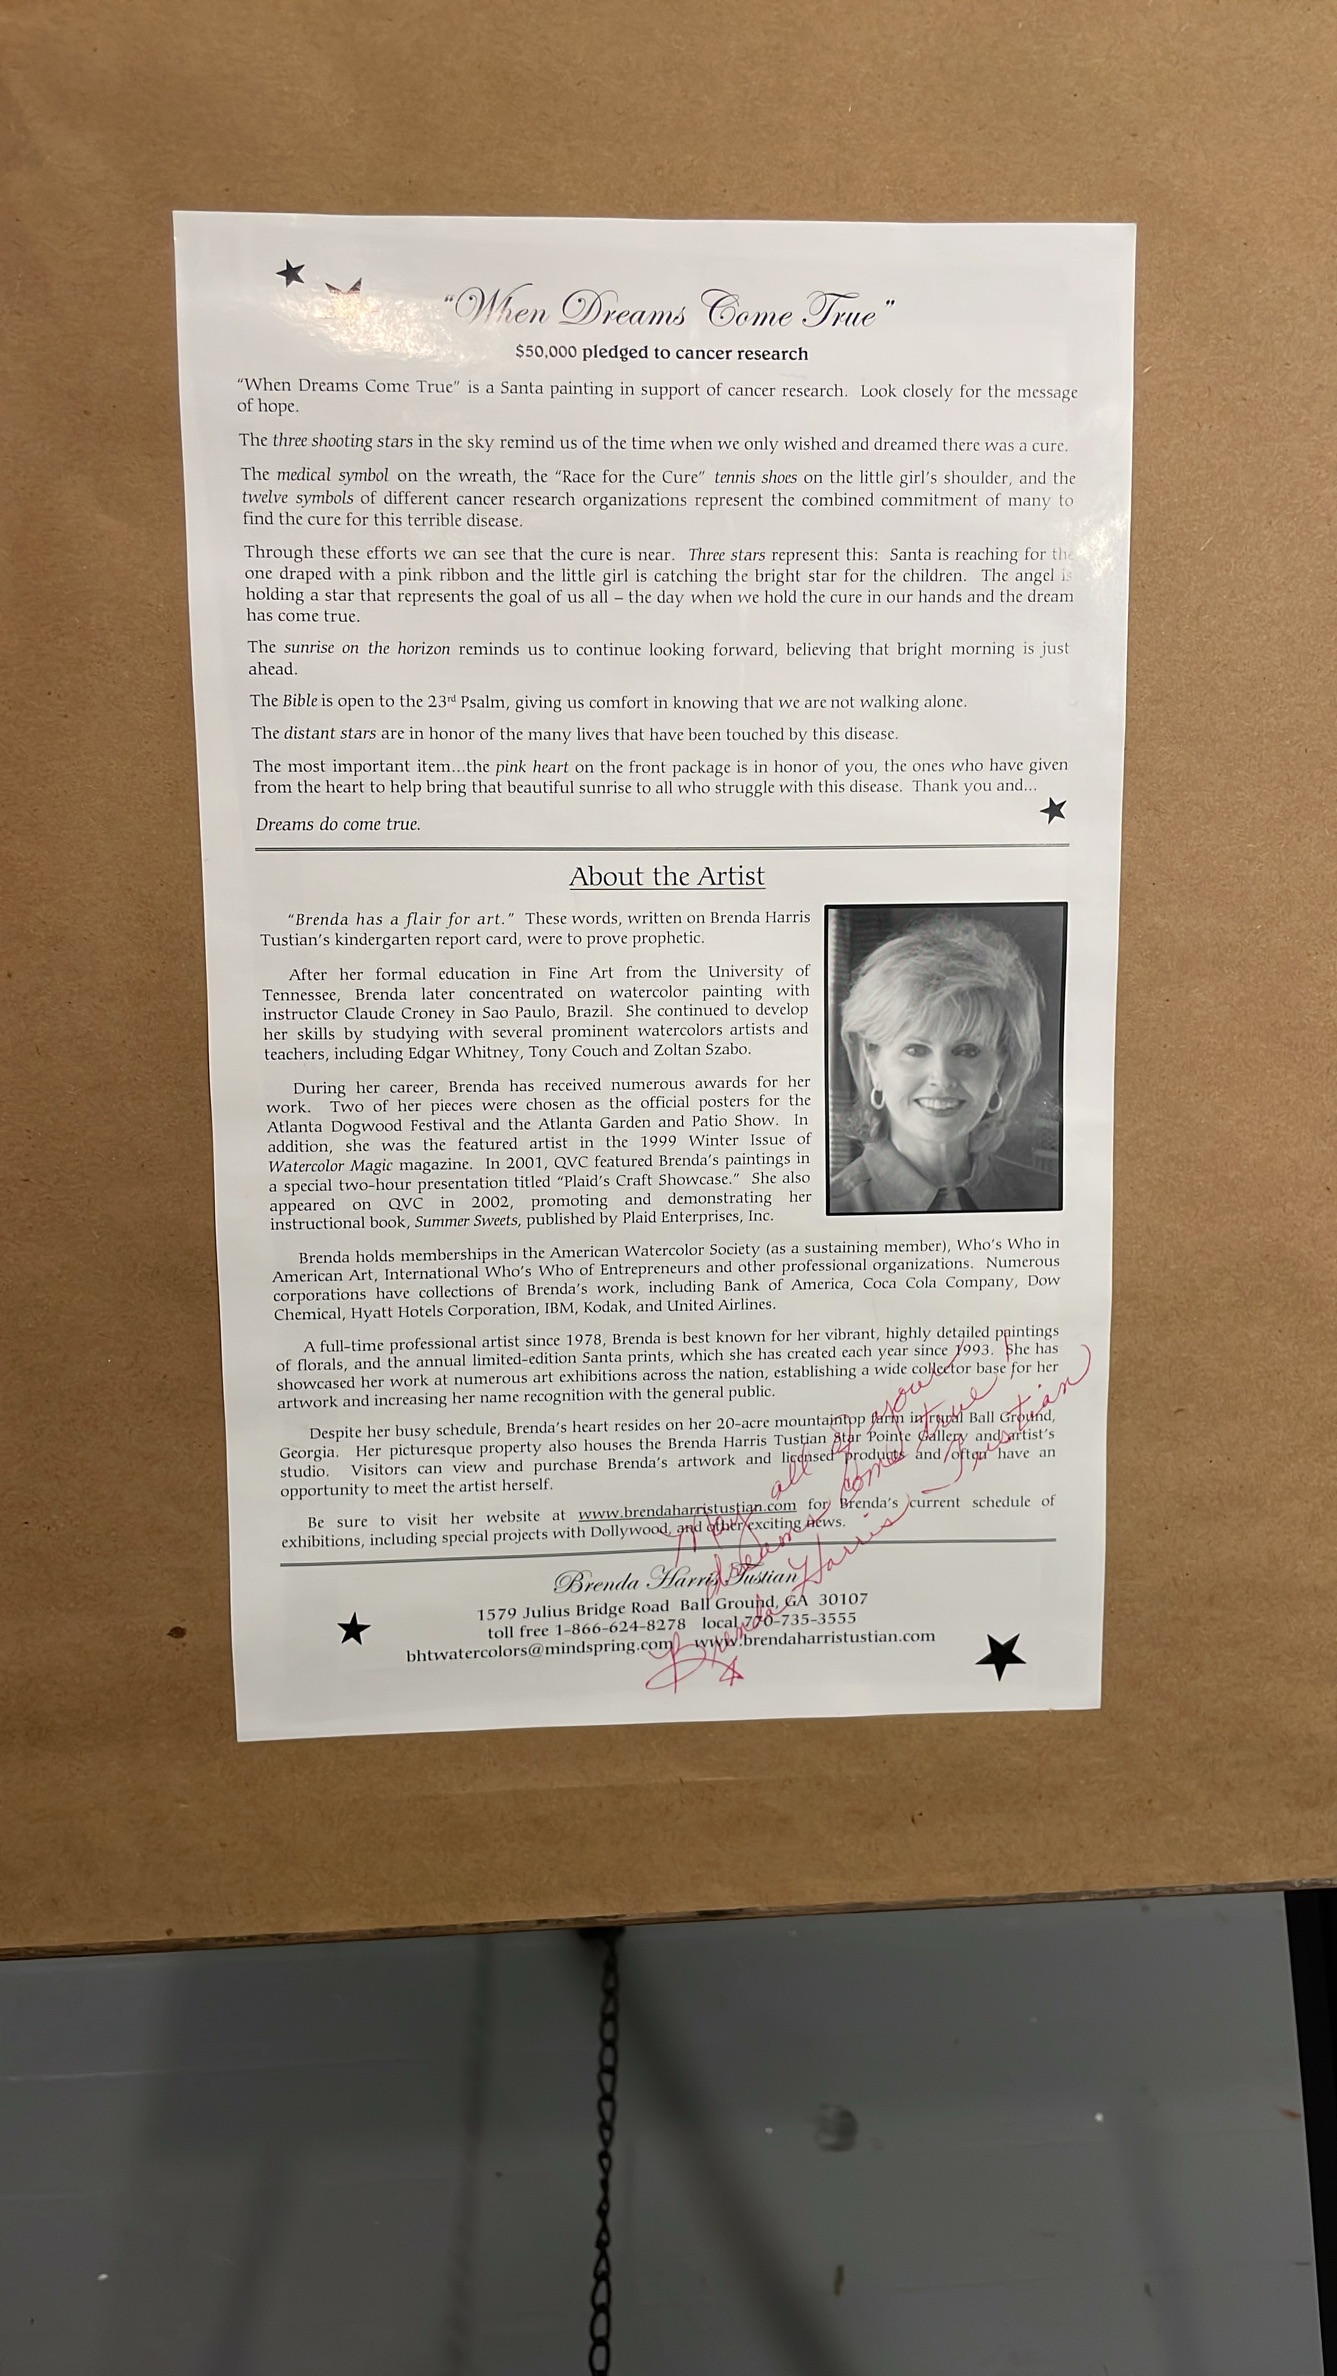 "When Dreams Come True"
$50,000 pledged to cancer research
"When Dreams Come True" is a Santa painting in support of cancer research. Look closely for the message
of hope.
The three shooting stars in the sky remind us of the time when we only wished and dreamed there was a cure.
The medical symbol on the wreath, the "Race for the Cure" tennis shoes on the little girl's shoulder, and the
twelve symbols of different cancer research organizations represent the combined commitment of many to
find the cure for this terrible disease.
Through these efforts we can see that the cure is near. Three stars represent this: Santa is reaching for the
one draped with a pink ribbon and the little girl is catching the bright star for the children. The angel is
holding a star that represents the goal of us all – the day when we hold the cure in our hands and the dream
has come true.
The sunrise on the horizon reminds us to continue looking forward, believing that bright morning is just
ahead.
The Bible is open to the 23rd Psalm, giving us comfort in knowing that we are not walking alone.
The distant stars are in honor of the many lives that have been touched by this disease.
The most important item...the pink heart on the front package is in honor of you, the ones who have given
from the heart to help bring that beautiful sunrise to all who struggle with this disease. Thank you and...
Dreams do come true.
About the Artist
"Brenda has a flair for art." These words, written on Brenda Harris
Tustian's kindergarten report card, were to prove prophetic.
After her formal education in Fine Art from the University of
Tennessee, Brenda later concentrated on watercolor painting with
instructor Claude Croney in Sao Paulo, Brazil. She continued to develop
her skills by studying with several prominent watercolors artists and
teachers, including Edgar Whitney, Tony Couch and Zoltan Szabo.
During her career, Brenda has received numerous awards for her
work. Two of her pieces were chosen as the official posters for the
Atlanta Dogwood Festival and the Atlanta Garden and Patio Show. In
addition, she was the featured artist in the 1999 Winter Issue of
Watercolor Magic magazine. In 2001, QVC featured Brenda's paintings in
a special two-hour presentation titled "Plaid's Craft Showcase." She also
appeared on QVC in 2002, promoting and demonstrating her
instructional book, Summer Sweets, published by Plaid Enterprises, Inc.
Brenda holds memberships in the American Watercolor Society (as a sustaining member), Who's Who in
American Art, International Who's Who of Entrepreneurs and other professional organizations. Numerous
corporations have collections of Brenda's work, including Bank of America, Coca Cola Company, Dow
Chemical, Hyatt Hotels Corporation, IBM, Kodak, and United Airlines.
A full-time professional artist since 1978, Brenda is best known for her vibrant, highly detailed paintings
of florals, and the annual limited-edition Santa prints, which she has created each year since 1993. She has
showcased her work at numerous art exhibitions across the nation, establishing a wide collector base for her
artwork and increasing her name recognition with the general public.
Despite her busy schedule, Brenda's heart resides on her 20-acre mountaintop farm in rural Ball Ground,
Georgia. Her picturesque property also houses the Brenda Harris Tustian Star Pointe Gallery and artist's
studio. Visitors can view and purchase Brenda's artwork and licensed products and often have an
opportunity to meet the artist herself.
Be sure to visit her website at www.brendaharristustian.com for Brenda's current schedule of
exhibitions, including special projects with Dollywood, and other exciting news.
Brenda Harris Tustian
1579 Julius Bridge Road Ball Ground, GA 30107
toll free 1-866-624-8278 local 770-735-3555
bhtwatercolors@mindspring.com www.brendaharristustian.com
May all of your
dreams come true
Brenda Harris-Tustian